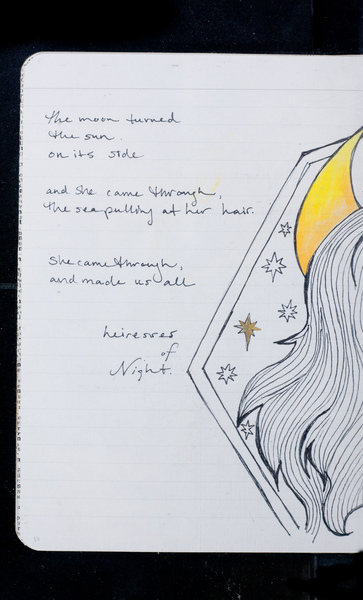 The moon turned
the sun
on its side
and she came through,
the sea pulling at her hair.
She came through,
and made us all
heiresses
of
Night.